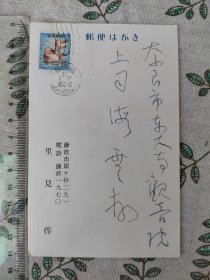 郵便はがき
奈良市东大寺観音院
上司海雲様
鎌倉市扇ヶ谷二九一
電話 鎌倉一九七〇
里見弴